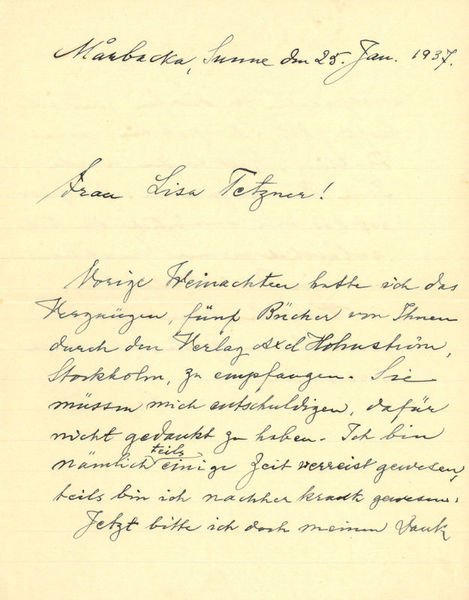 Mårbacka, Sunne den 25. Jan. 1937.
Frau Lisa Tetzner!
Vorige Weinachten hatte ich das
Vergnügen, fünf Bücher von Ihnen
durch den Verlag Axel Holmström,
Stockholm, zu empfangen. Sie
müssen mich entschuldigen, dafür
nicht gedankt zu haben. Ich bin
teils
nämlich einige Zeit verreist gewesen,
teils bin ich nachher krank gewesen.
Jetzt bitte ich doch meinen Dank